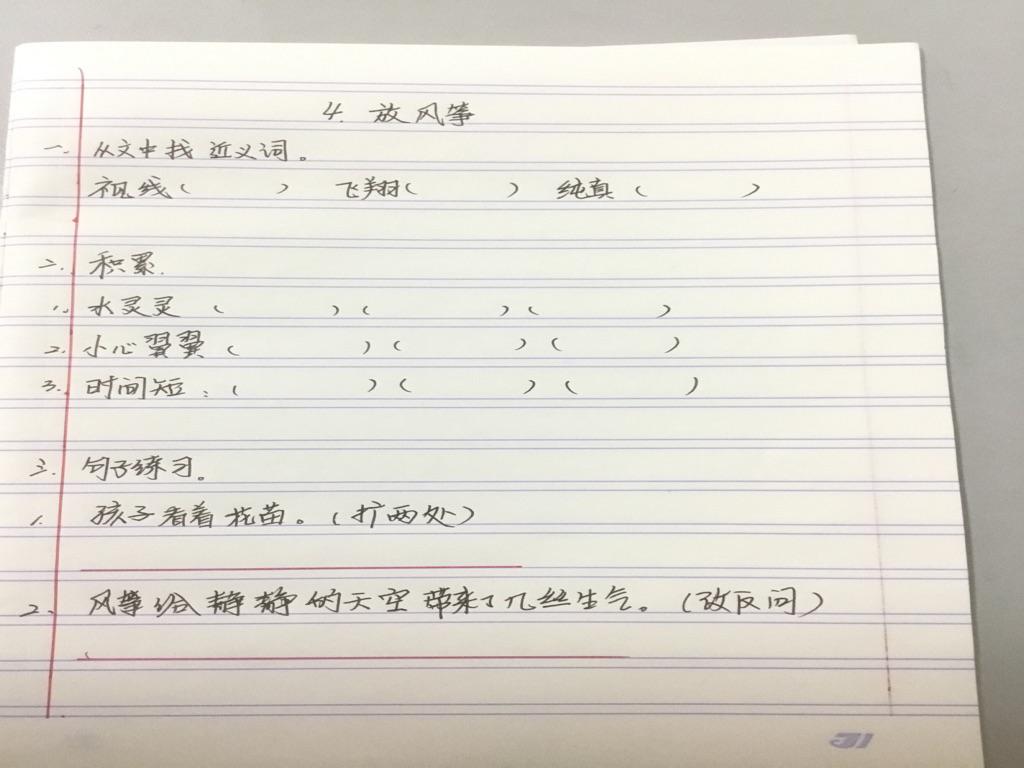 4. 放风筝
一. 从文中找近义词。
视线( ) 飞翔( ) 纯真( )
二. 积累.
1. 水灵灵 ( ) ( ) ( )
2. 小心翼翼( ) ( ) ( )
3. 时间短:( ) ( ) ( )
三. 句子练习。
1. 孩子看着花苗。(扩两处)
2. 风筝给静静的天空带来了几丝生气。(改反问)